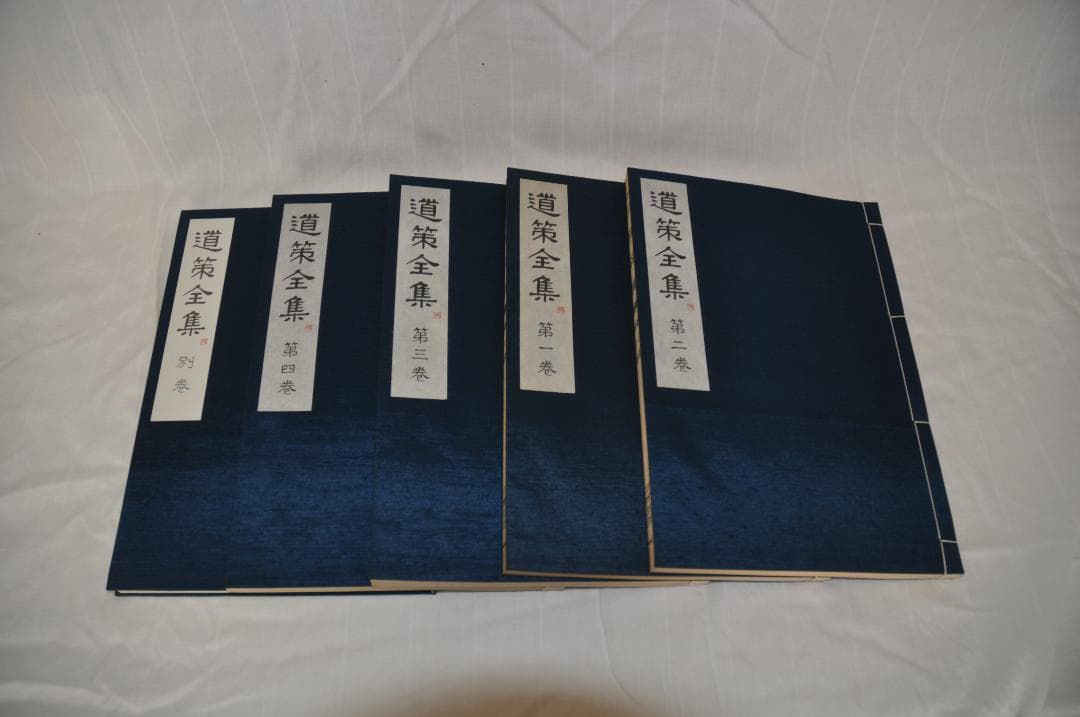 道策全集 別卷
道策全集 第四卷
道策全集 第三卷
道策全集 第一卷
道策全集 第二卷